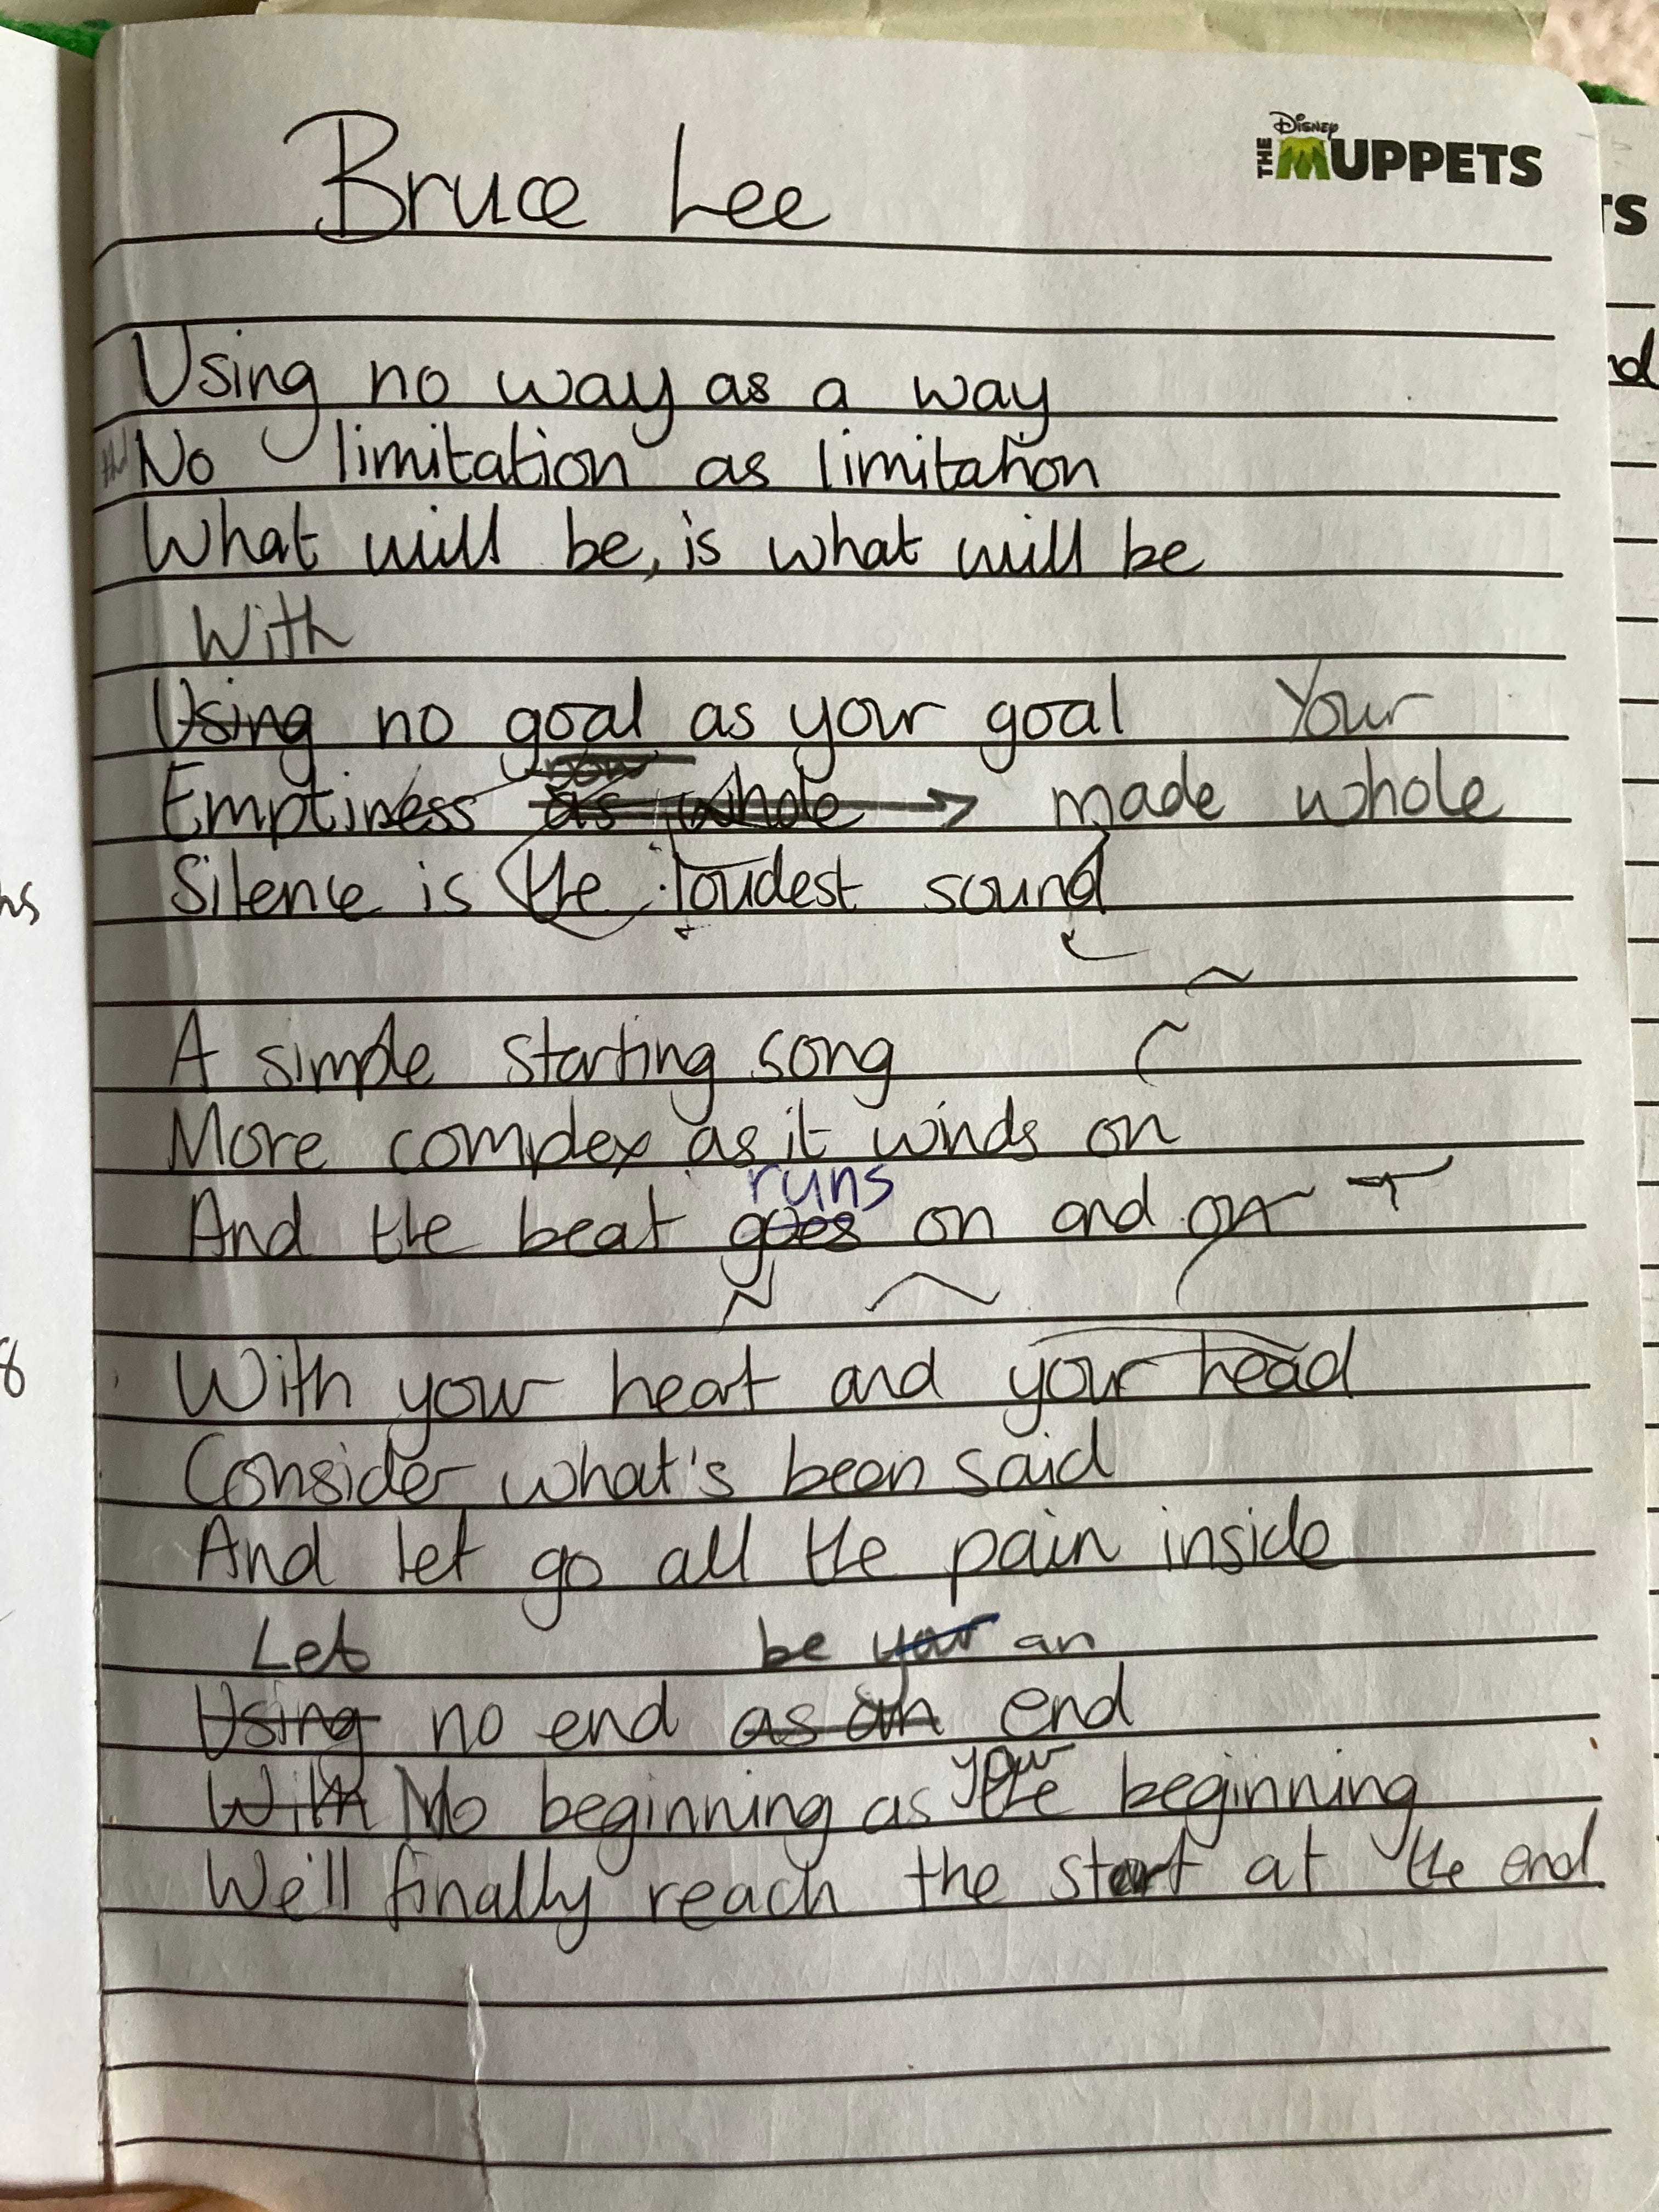 Bruce Lee
DISNEY
THE MUPPETS
TS
Using no way as a way
nd
No limitation as limitation
What will be, is what will be
With
Using no goal as your goal Your
now
Emptiness as whole → made whole
Silence is the loudest sound
ns
A simple starting song
More complex as it winds on
runs
And the beat goes on and on
With your heart and your head
8
Consider what's been said
And let go all the pain inside
Let be your an
Using no end as an end
your
With No beginning as the beginning
We'll finally reach the start at the end